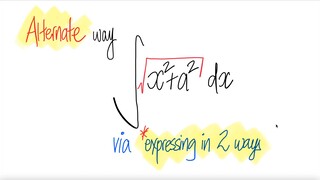 Alternate way
∫√x²+a² dx
via *expressing in 2 ways